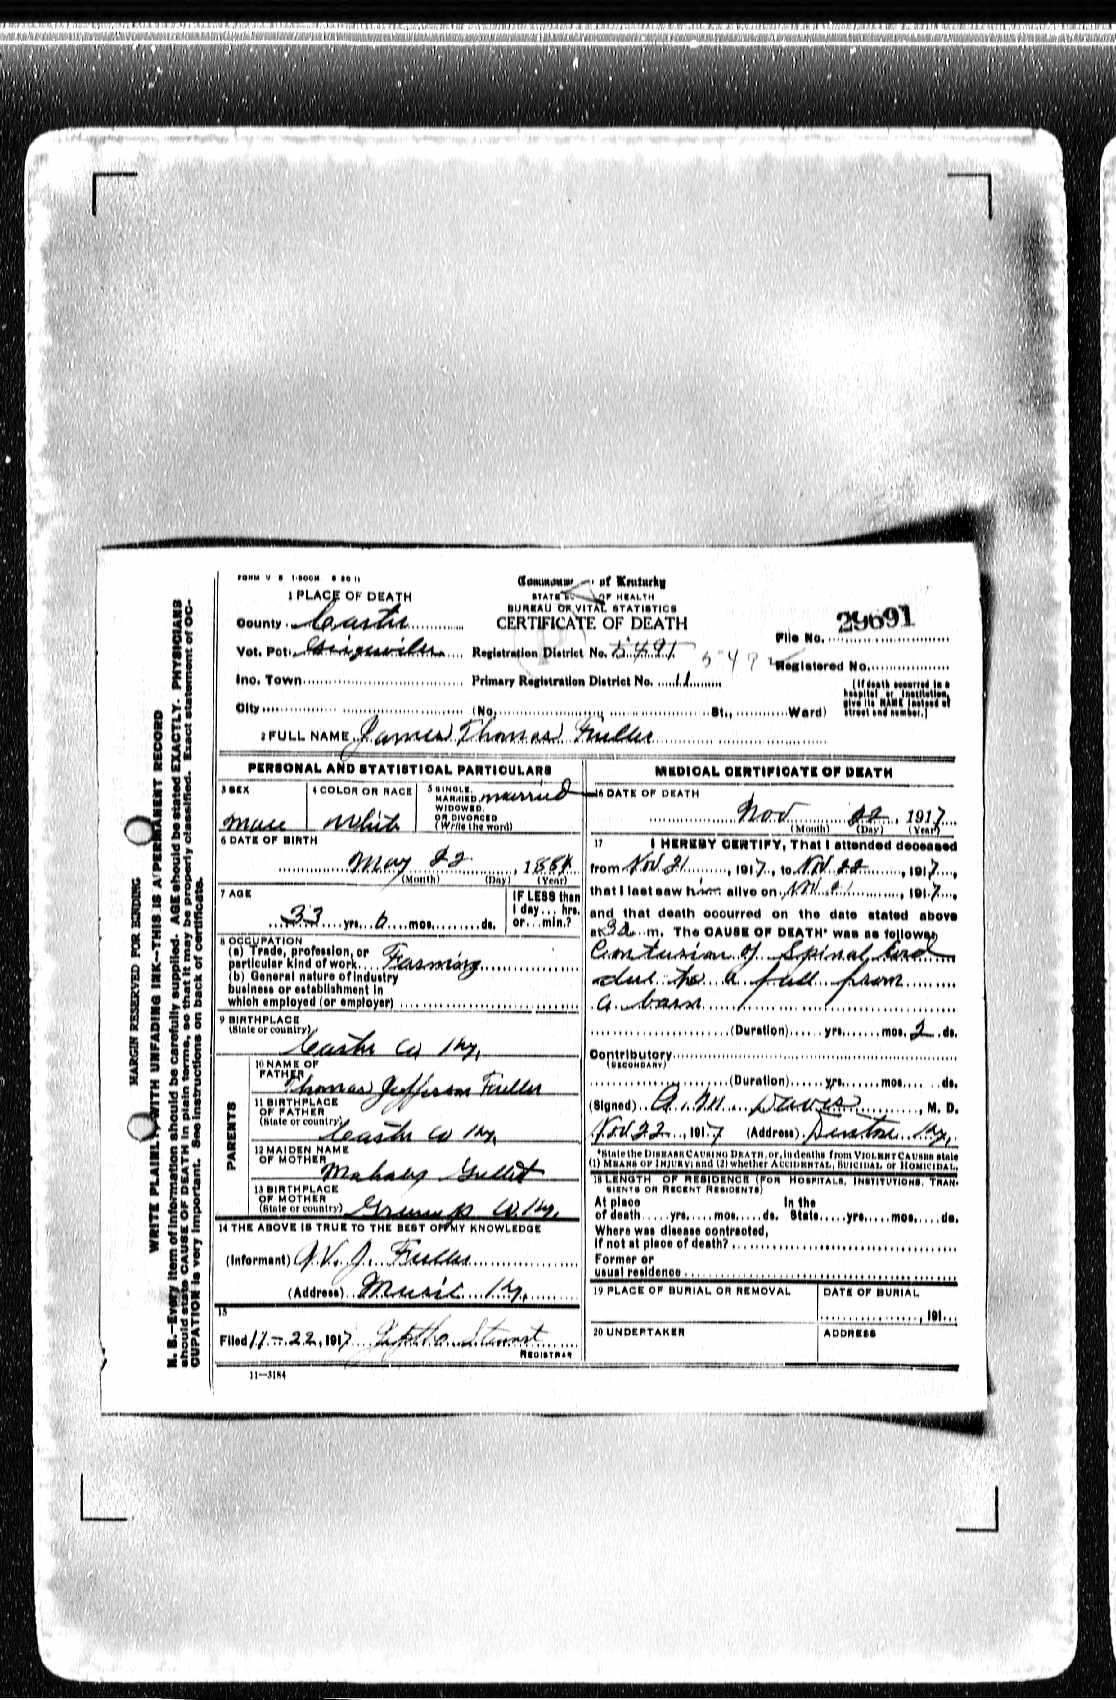 FORM V S 1-500M 8 20 11
Commonw of Kentucky
STATE OF HEALTH
BUREAU OF VITAL STATISTICS
CERTIFICATE OF DEATH
1 PLACE OF DEATH
County Carter
Vot. Pct.
Ino. Town
City
Registration District No. 5491
Primary Registration District No. 11
(No. St., Ward)
File No. 29691
Registered No.
[If death occurred in a hospital or institution, give its NAME instead of street and number.]
2 FULL NAME James Thomas Fuller
PERSONAL AND STATISTICAL PARTICULARS
3 SEX
Male
4 COLOR OR RACE
White
5 SINGLE, MARRIED, WIDOWED, OR DIVORCED (Write the word)
Married
6 DATE OF BIRTH
May 22, 1884
(Month) (Day) (Year)
7 AGE
33 yrs. 6 mos. ds.
IF LESS than 1 day... hrs. or... min.?
8 OCCUPATION
(a) Trade, profession, or
particular kind of work Farming
(b) General nature of industry
business or establishment in
which employed (or employer)
9 BIRTHPLACE
(State or country)
Carter Co Ky.
PARENTS
10 NAME OF FATHER
Thomas Jefferson Fuller
11 BIRTHPLACE OF FATHER
(State or country)
Carter Co Ky.
12 MAIDEN NAME OF MOTHER
Mahaley
13 BIRTHPLACE OF MOTHER
(State or country)
Greenup Co Ky.
14 THE ABOVE IS TRUE TO THE BEST OF MY KNOWLEDGE
(Informant) G. V. J. Fuller
(Address) Music Ky.
15
Filed 11-22, 1917 Stewart
REGISTRAR
11—3184
MEDICAL CERTIFICATE OF DEATH
16 DATE OF DEATH
Nov 22, 1917
(Month) (Day) (Year)
17 I HEREBY CERTIFY, That I attended deceased
from Nov 21, 1917, to Nov 22, 1917,
that I last saw him alive on Nov 1917,
and that death occurred on the date stated above
at 3 a m. The CAUSE OF DEATH* was as follows:
Contusion of Spinal Cord
due to a fall from
a barn
(Duration) yrs. mos. 2 ds.
Contributory
(SECONDARY)
(Duration) yrs. mos. ds.
(Signed) Davis, M. D.
Nov 22, 1917 (Address) Denton Ky.
*State the DISEASE CAUSING DEATH, or, in deaths from VIOLENT CAUSES state
(1) MEANS OF INJURY; and (2) whether ACCIDENTAL, SUICIDAL or HOMICIDAL.
18 LENGTH OF RESIDENCE (FOR HOSPITALS, INSTITUTIONS, TRANSIENTS OR RECENT RESIDENTS)
At place of death yrs. mos. ds. In the State yrs. mos. ds.
Where was disease contracted,
if not at place of death?
Former or
usual residence
19 PLACE OF BURIAL OR REMOVAL
DATE OF BURIAL
191
20 UNDERTAKER
ADDRESS
MARGIN RESERVED FOR BINDING
WRITE PLAINLY, WITH UNFADING INK—THIS IS A PERMANENT RECORD
N. B.—Every item of information should be carefully supplied. AGE should be stated EXACTLY. PHYSICIANS
should state CAUSE OF DEATH in plain terms, so that it may be properly classified. Exact statement of OC-
CUPATION is very important. See instructions on back of certificate.